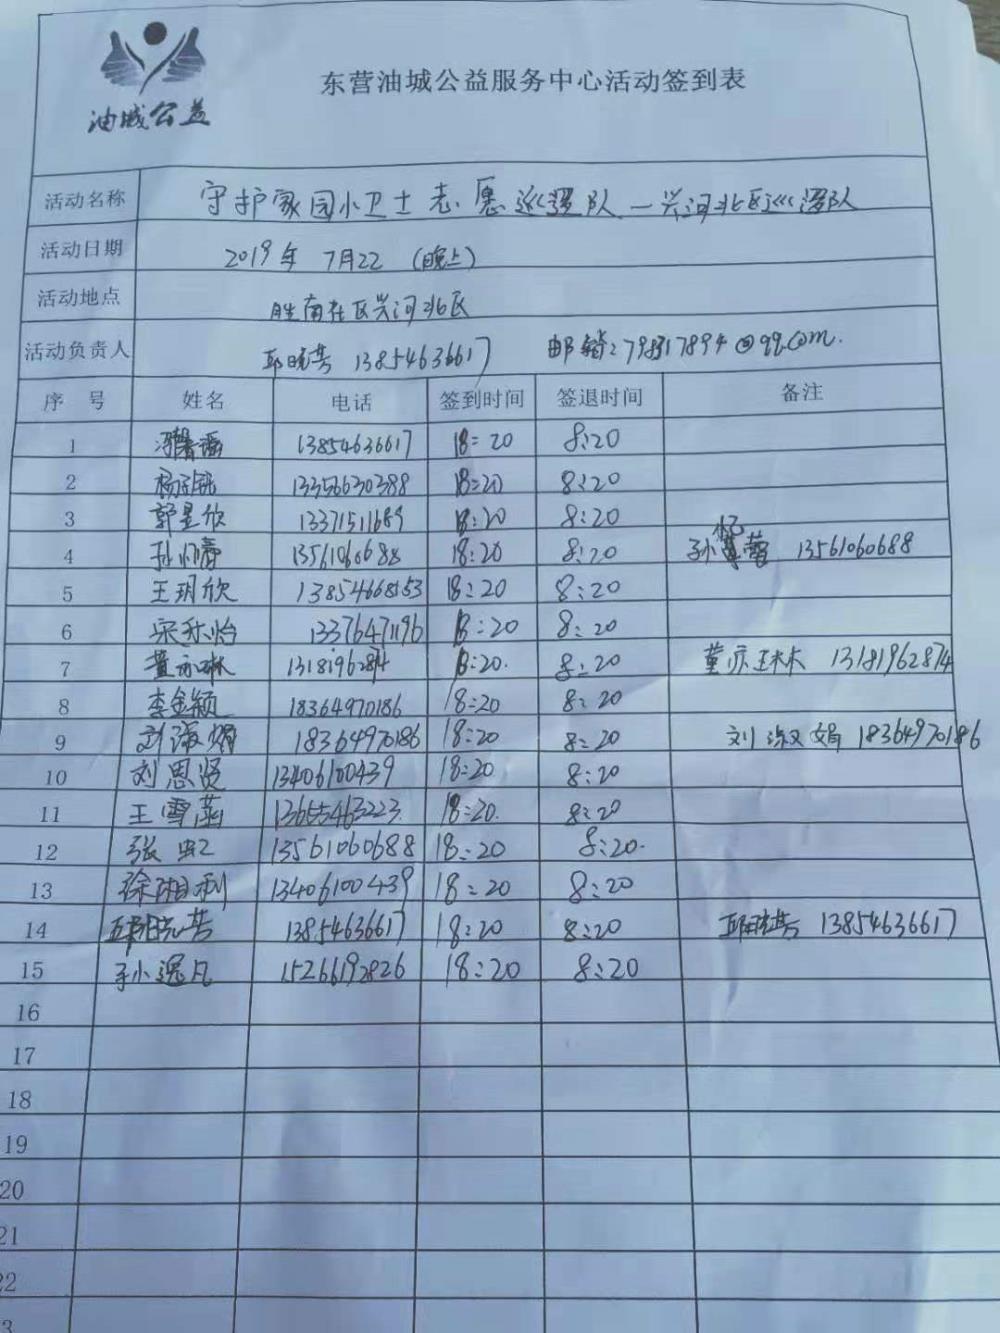 油城公益
东营油城公益服务中心活动签到表
活动名称 守护家园小卫士志愿巡逻队—兴河北区巡逻队
活动日期 2019年 7月22 (晚上)
活动地点 胜南社区兴河北区
活动负责人 邱晓芳 13854636617 邮箱:
序号 姓名 电话 签到时间 签退时间 备注
1 13854636617 18:20 8:20
2 13356630388 18:20 8:20
3 郭昱欣 13371511689 18:20 8:20
4 13561060688 18:20 8:20 孙 13561060688
5 王玥欣 13854668153 18:20 8:20
6 宋乔怡 13376471196 18:20 8:20
7 董亦琳 13181962874 18:20. 8:20 董亦琳 13181962874
8 李金颖 18364970186 18:20 8:20
9 刘淑娟 18364970186 18:20 8:20 刘淑娟 18364970186
10 刘恩贤 13406100439 18:20 8:20
11 王雪菡 13655463223 18:20. 8:20
12 张虹 13561060688 18:20 8:20.
13 徐湘利 13406100439 18:20 8:20
14 邱晓芳 13854636617 18:20 8:20 邱晓芳 13854636617
15 孙逸凡 15266192826 18:20 8:20
16
17
18
19
20
21
22
3